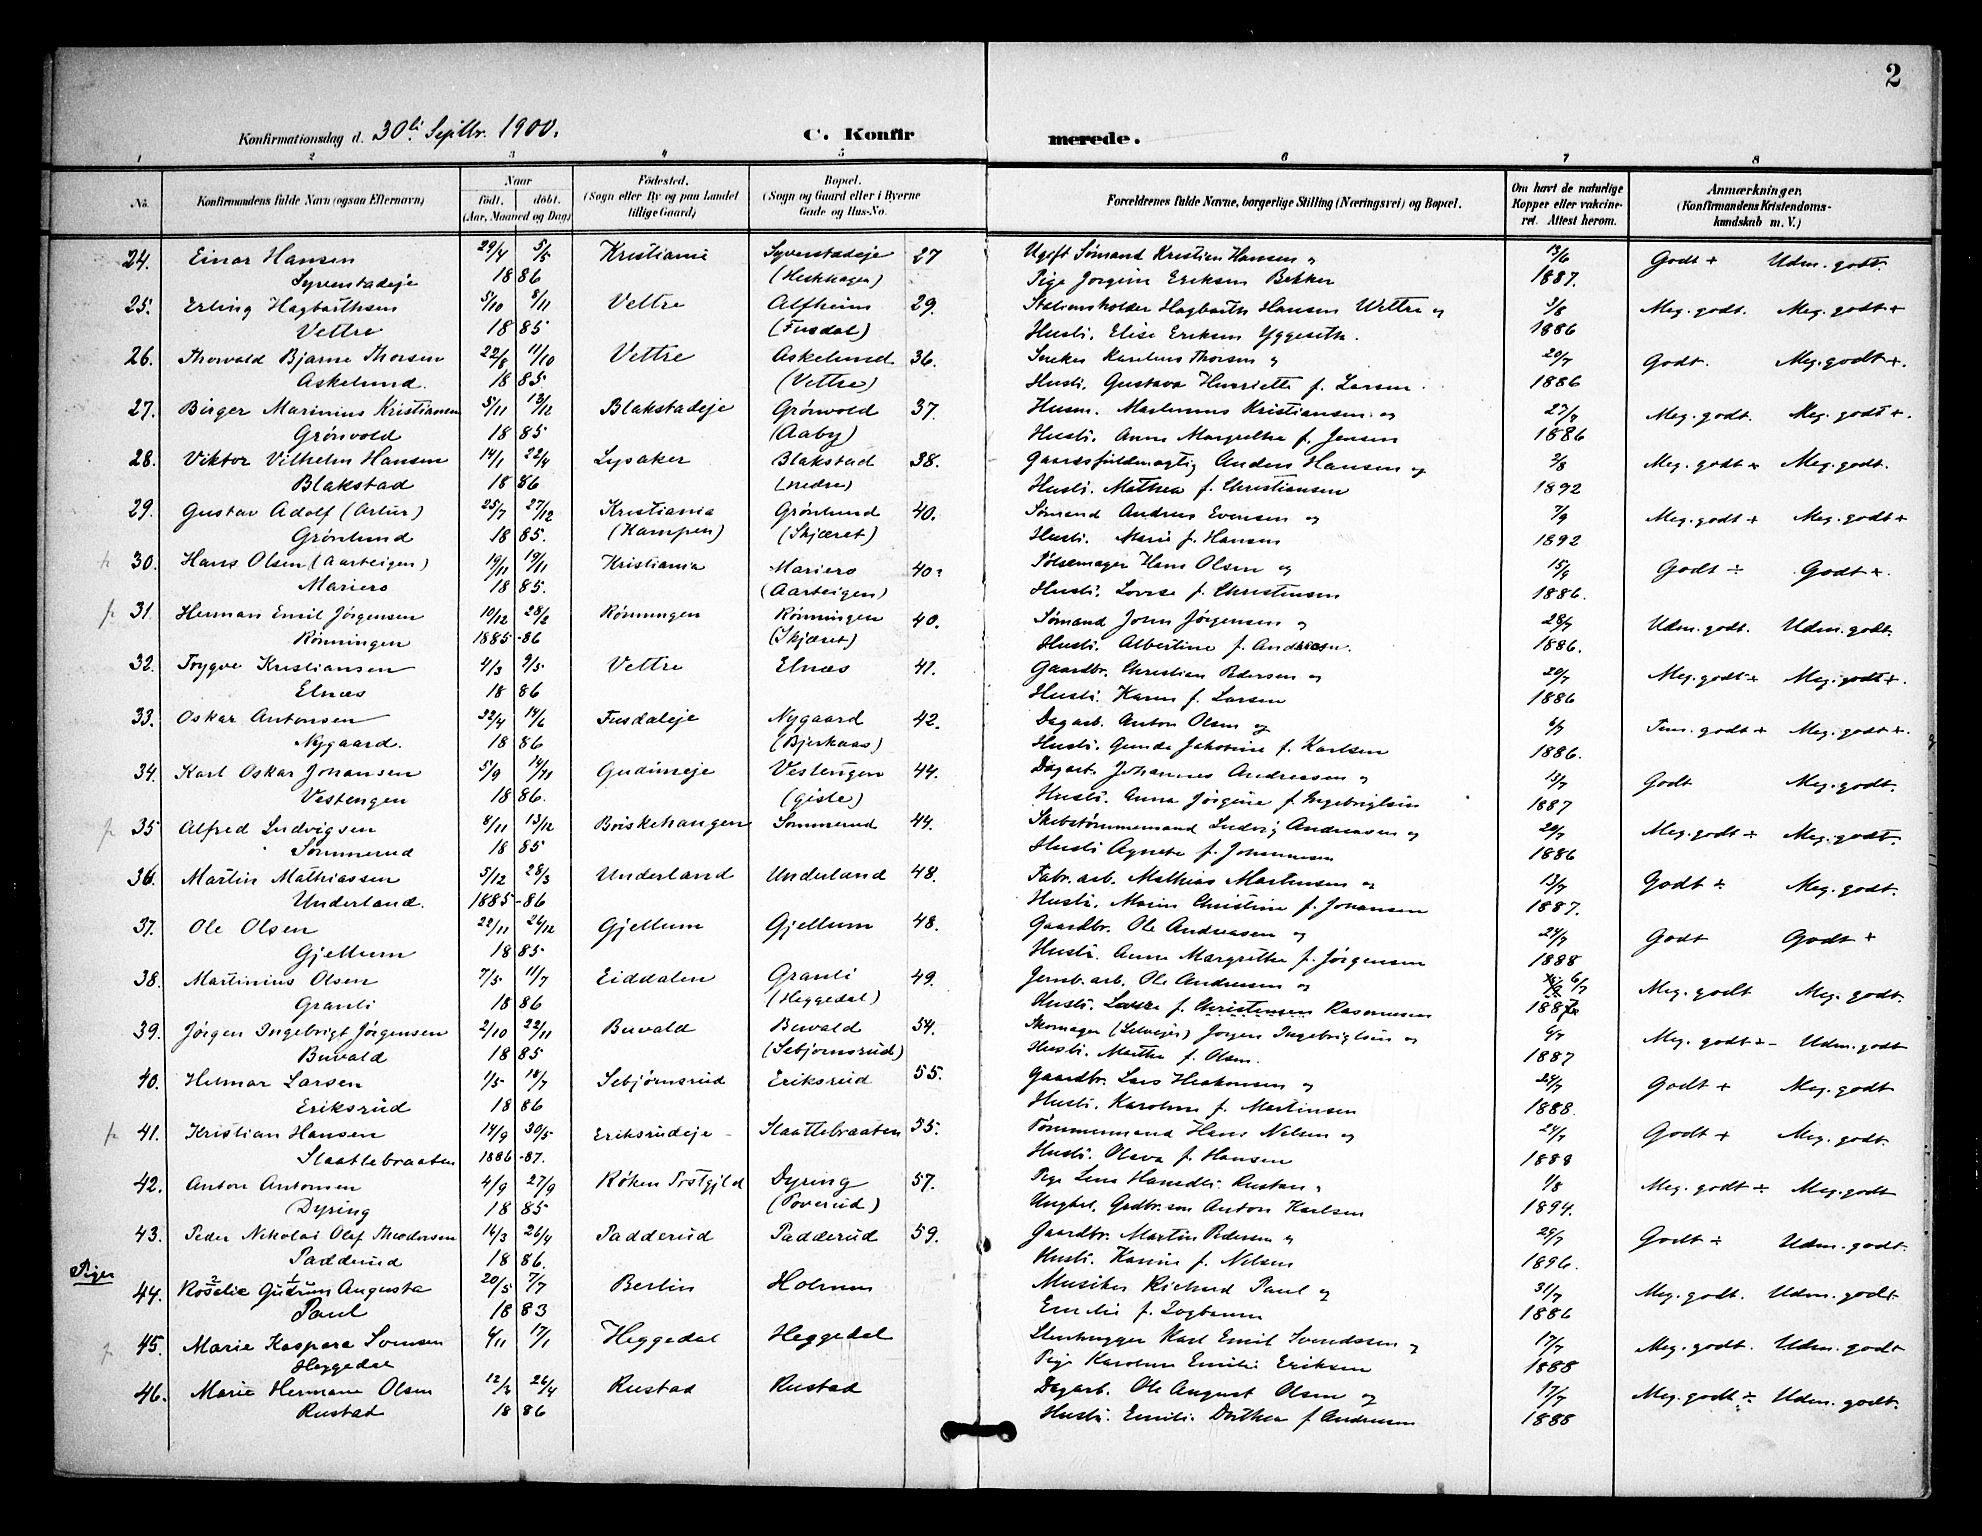 2
Konfirmationsdag d. 30te Septbr. 1900.
C. Konfir merede.
1 2 3 4 5 6 7 8
No. Konfirmandens fulde Navn (ogsaa Efternavn) Naar født. døbt. (Aar, Maaned og Dag) Fødested. (Sogn eller By og paa Landet tillige Gaard) Bopæl. (Sogn og Gaard eller i Byerne Gade og Hus-No. Forældrenes fulde Navne, borgerlige Stilling (Næringsvei) og Bopæl. Om havt de naturlige Kopper eller vakcineret. Attest herom. Anmærkninger. (Konfirmandens Kristendomskundskab m. V.)
24. Einar Hansen 29/4 5/5 Kristiania Syverstadeje 27 Ugift Sømand Kristian Hansen og 13/6 Godt + Udm. godt.
Syverstadeje 18 86 Pige Jorgine Eriksen Bekker 1887.
25. Erling Hagbarthsen 5/10 8/11 Vettre Alfheim 29. Stationsholder Hagbarth Hansen Wettre og 3/8 Meg. godt. Meg. godt +
Vettre 18 85 (Fusdal) Hustr. Elise Eriksen Yggeseth. 1886
26. Thorvald Bjarne Thorsen 22/8 11/10 Vettre Askelund 36. Snekker Karelius Thorsen og 20/7 Godt. Meg. godt +.
Askelund. 18 85 (Vettre) Hustr. Gustava Henriette f. Larsen. 1886
27. Birger Marinius Kristiansen 5/11 13/12 Blakstadeje Grönvold 37. Husm. Martinius Kristiansen og 27/7 Meg. godt. Meg. godt +.
Grönvold 18 85 (Aaby) Hustr. Anne Margrethe f. Jensen 1886
28. Viktor Vilhelm Hansen 14/1 22/4 Lysaker Blakstad 38. Gaardsfuldmægtig Anders Hansen og 2/8 Meg. godt + Meg. godt.
Blakstad 18 86 (nedre) Hustr. Mathea f. Christiansen 1892
29. Gustav Adolf (Artur) 25/7 27/12 Kristiania Grönlund 40. Sømand Andreas Evensen og 7/9 Meg. godt + Meg. godt +
Grönlund 18 85. (Kampen) (Skjæret) Hustr. Marie f. Hansen 1892
30. Hans Olsen (Aarteigen) 19/11 19/11 Kristiania Mariero 40. Pølsemager Hans Olsen og 15/4 Godt ÷ Godt +.
Mariero 18 85. (Aarteigen) Hustr. Lovise f. Christensen 1886.
31. Herman Emil Jørgensen 10/12 28/2 Rønningen Rønningen 40. Sømand John Jørgensen og 28/7 Udm. godt. Udm. godt
Rønningen 1885-86 (Skjæret) Hustr. Albertine f. Andersen. 1886.
32. Trygve Kristiansen 4/3 9/5 Vettre Elnæs 41. Gaardbr. Christian Pedersen og 20/7 Meg. godt + Meg. godt +.
Elnæs 18 86 Hustr. Karen f. Larsen 1886
33. Oskar Antonsen 22/4 14/6 Fusdaleje Nygaard 42. Dagarb. Anton Olsen og 6/7 Tem. godt + Meg. godt +.
Nygaard. 18 86 (Bjerkaas) Hustr. Gunda Jakobine f. Karlsen 1886.
34. Karl Oskar Johansen 5/9 14/11 Gudimeje Vestengen 44. Dagarb. Johannes Andreasen og 13/7 Godt Meg. godt.
Vestengen 18 86. (Giste) Hustr. Anna Jørgine f. Ingebrigtsen 1887
35 Alfred Ludvigsen 8/11 13/12 Boiskehangen Sommerud 44. Skibstømmermand Ludvig Andreasen og 20/7 Meg. godt + Meg. godt.
Sommerud 18 85 Hustr. Agnete f. Johannesen 1886
36. Martin Mathiassen 5/12 28/3 Underland Underland 48. Fabr. arb. Mathias Martinsen og 13/7 Godt ÷ Meg. godt.
Underland. 1885-86 Hustr. Maren Christine f. Johansen 1887.
37. Ole Olsen 22/11 24/12 Gjellum Gjellum 48. Gaardbr. Ole Andreasen og 24/7 Godt Godt +
Gjellum 18 85 Hustr. Anne Margrethe f. Jørgensen 1888
38. Martinius Olsen 7/5 11/7 Eiddalen Granli 49. Jernb. arb. Ole Andreasen og 6/7 Meg. godt Meg. godt.
Granli 18 86 (Heggedal) Hustr. Lovise f. Christensen Rasmussen 1887
39. Jørgen Ingebrigt Jørgensen 2/10 22/11 Buvald Buvald 54. Skomager (Selvejer) Jørgen Ingebrigtsen og 6/7 Meg. godt ÷ Udm. godt
Buvald 18 85 (Sebjørnsrud) Hustr. Marthe f. Olsen. 1887
40. Helmar Larsen 1/5 18/7 Sebjørnsrud Eriksrud 55. Gaardbr. Lars Heskonsen og 24/7 Godt + Meg. godt
Eriksrud 18 86 Hustr. Karoline f. Martinsen 1888.
41. Kristian Hansen 14/9 30/5 Eriksrudeje Slaattebraaten 55. Tømmermand Hans Nilsen og 24/7 Godt + Meg. godt
Slaattebraaten 1886-87. Hustr. Oleva f. Hansen 1888
42. Anton Antonsen 4/9 27/9 Røken Prstgjld Dyring 57. Pige Lena Hansdtr. Rustan og 1/8 Meg. godt ÷ Meg. godt
Dyring 18 85 (Poverud) Ungkl. Grdbr. søn Anton Karlsen 1894.
43. Peder Nikolai Olaf Theodorsen 14/3 26/4 Padderud Padderud 59. Gaardbr. Martin Pedersen og 29/7 Godt ÷ Udm. godt.
Padderud 18 86. Hustr. Karine f. Nilsen 1896.
Piger
44. Rosalie Gudrun Augusta 20/5 7/7 Berlin Holmen Musiker Richard Paul og 31/7 Meg. godt. Udm. godt
Paul 18 83 Emilie f. Logbaum 1886
45. Marie Kaspara Svensen 4/11 17/1 Heggedal Heggedal Stenhugger Karl Emil Svendssen og 17/7 Meg. godt. Udm. godt
Heggedal Pige Karoline Emilie Eriksen 1888
46. Marie Hermane Olsen 12/2 26/4 Rustad Rustad Dagarb. Ole August Olsen og 17/7 Meg. godt ÷ Udm. godt.
Rustad 18 86 Hustr. Emilie Dorthea f. Andersen 1888